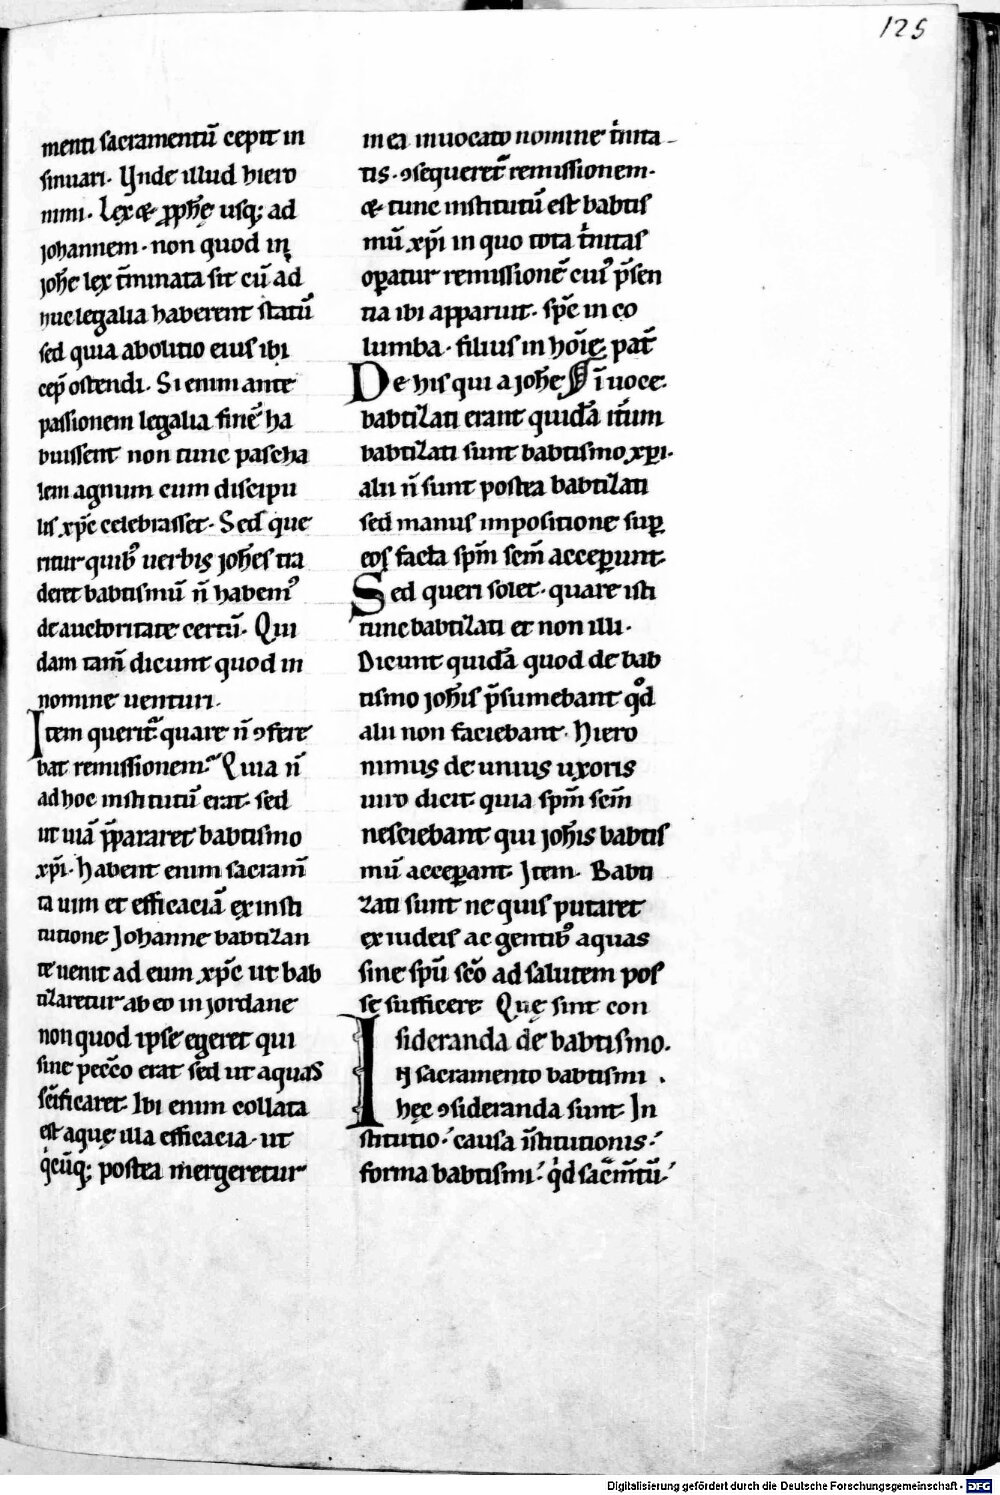 125
menti sacramentū cepit in
sinuari. Vnde illud hiero
nimi. Lex & ꝓphę̄ usq; ad
johannem. non quod in
joh̄e lex t̄minata sit cū ad
huc legalia haberent statū
sed quia abolitio eius ibi
cep̄ ostendi. Si enim ante
passionem legalia finē ha
buissent non tunc pascha
lem agnum cum discipu
lis xp̄c celebrasset. Sed que
ritur quibꝰ uerbis joh̄es tra
deret babtismū n̄ habemꝰ
de auctoritate certū. Qui
dam tam̄ dicunt quod in
nomine uenturi.
Item querit̄ quare n̄ ꝯfere
bat remissionem. Quia n̄
ad hoc institutū erat. sed
ut uiā p̄pararet babtismo
xp̄i. habent enim sacram̄
ta uim et efficaciā ex insti
tutione Johanne babtizan
te uenit ad eum xp̄c ut bab
tizaretur ab eo in jordane
non quod ipse egeret qui
sine pecc̄o erat sed ut aquas
sc̄ificaret. Ibi enim collata
est aquę illa efficacia. ut
q̇cūq; postea mergeretur
in ea inuocato nomine ṫnita
tis. ꝯsequeret̄ remissionem.
& tunc institutū est babtis
mū xp̄i in quo tota ṫnitas
oꝑatur remissionē cuiꝰ p̄sen
tia ibi apparuit. sp̄c in co
lumba. filius in hoīe. pat̄
De his qui a joh̄e ī uoce.
babtizati erant quidā it̄um
babtizati sunt babtismo xp̄i.
alii n̄ sunt postea babtizati
sed manus impositione suꝑ
eos facta sp̄m sc̄m acceperunt.
Sed queri solet. quare isti
tunc babtizati et non illi.
Dicunt quidā quod de bab
tismo joh̄is p̄sumebant qͦd
alii non faciebant. Hiero
nimus de unius uxoris
uiro dicit. quia sp̄m sc̄m
nesciebant qui joh̄is babtis
mū acceꝑant. Item. Babti
zati sunt ne quis putaret
ex iudeis ac gentibꝰ aquas
sine sp̄u sc̄o ad salutem pos
se sufficere Quę sint con
sideranda de babtismo.
IN sacramento babtismi
hęc ꝯsideranda sunt. In
stitutio. causa īstitutionis.
forma babtismi. q̇d sac̄m̄tū.
Digitalisierung gefördert durch die Deutsche Forschungsgemeinschaft - DFG